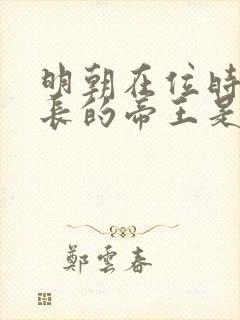 明朝在位時
長的帝王是
鄭雲春